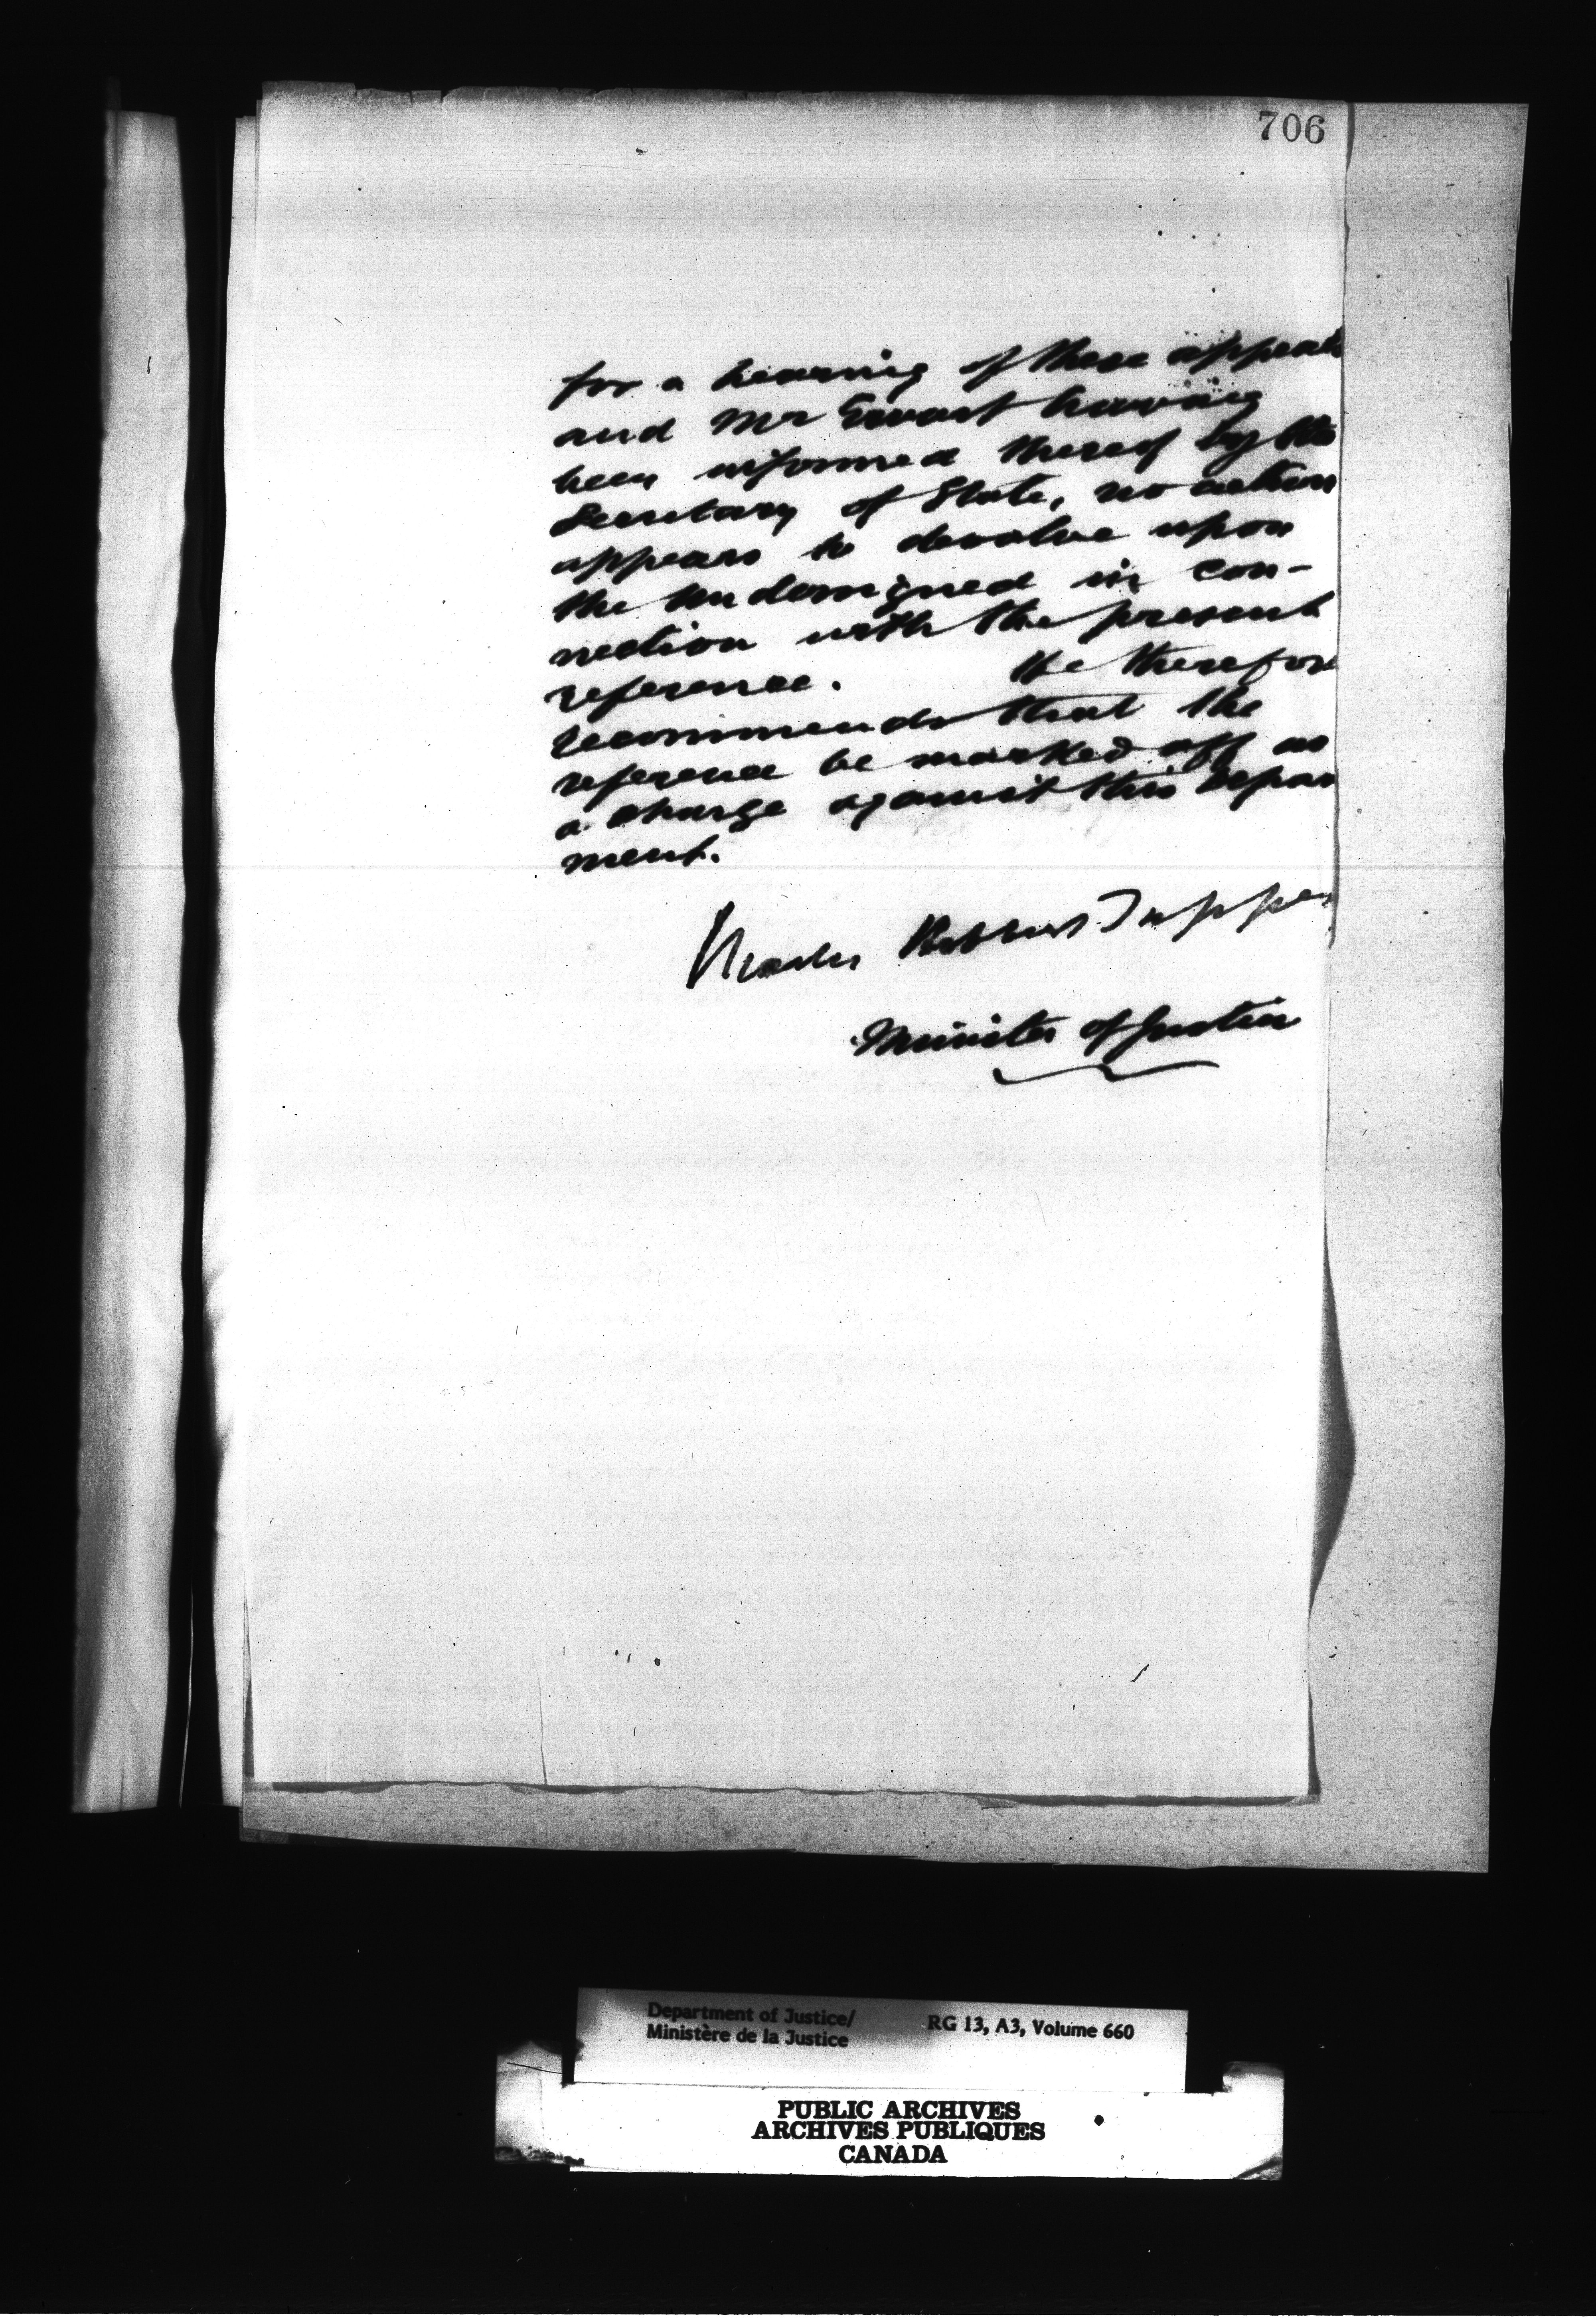 706
for a hearing of these appeals
and Mr Ewart having
been informed thereof by the
Secretary of State, no action
appears to devolve upon
the undersigned in con-
nection with the present
reference. He therefore
recommends that the
reference be marked off as
a charge against this Depart
ment.
Charles Hibbert Tupper
Minister of Justice
Department of Justice/
Ministère de la Justice
RG 13, A3, Volume 660
PUBLIC ARCHIVES
ARCHIVES PUBLIQUES
CANADA